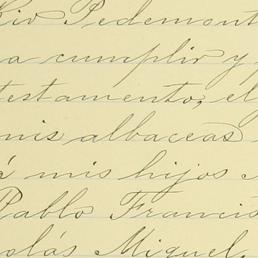 Rio Pedemont
a cumplir y
testamento, el
mis albaceas
á mis hijos
Pablo Francis
olás Miguel,